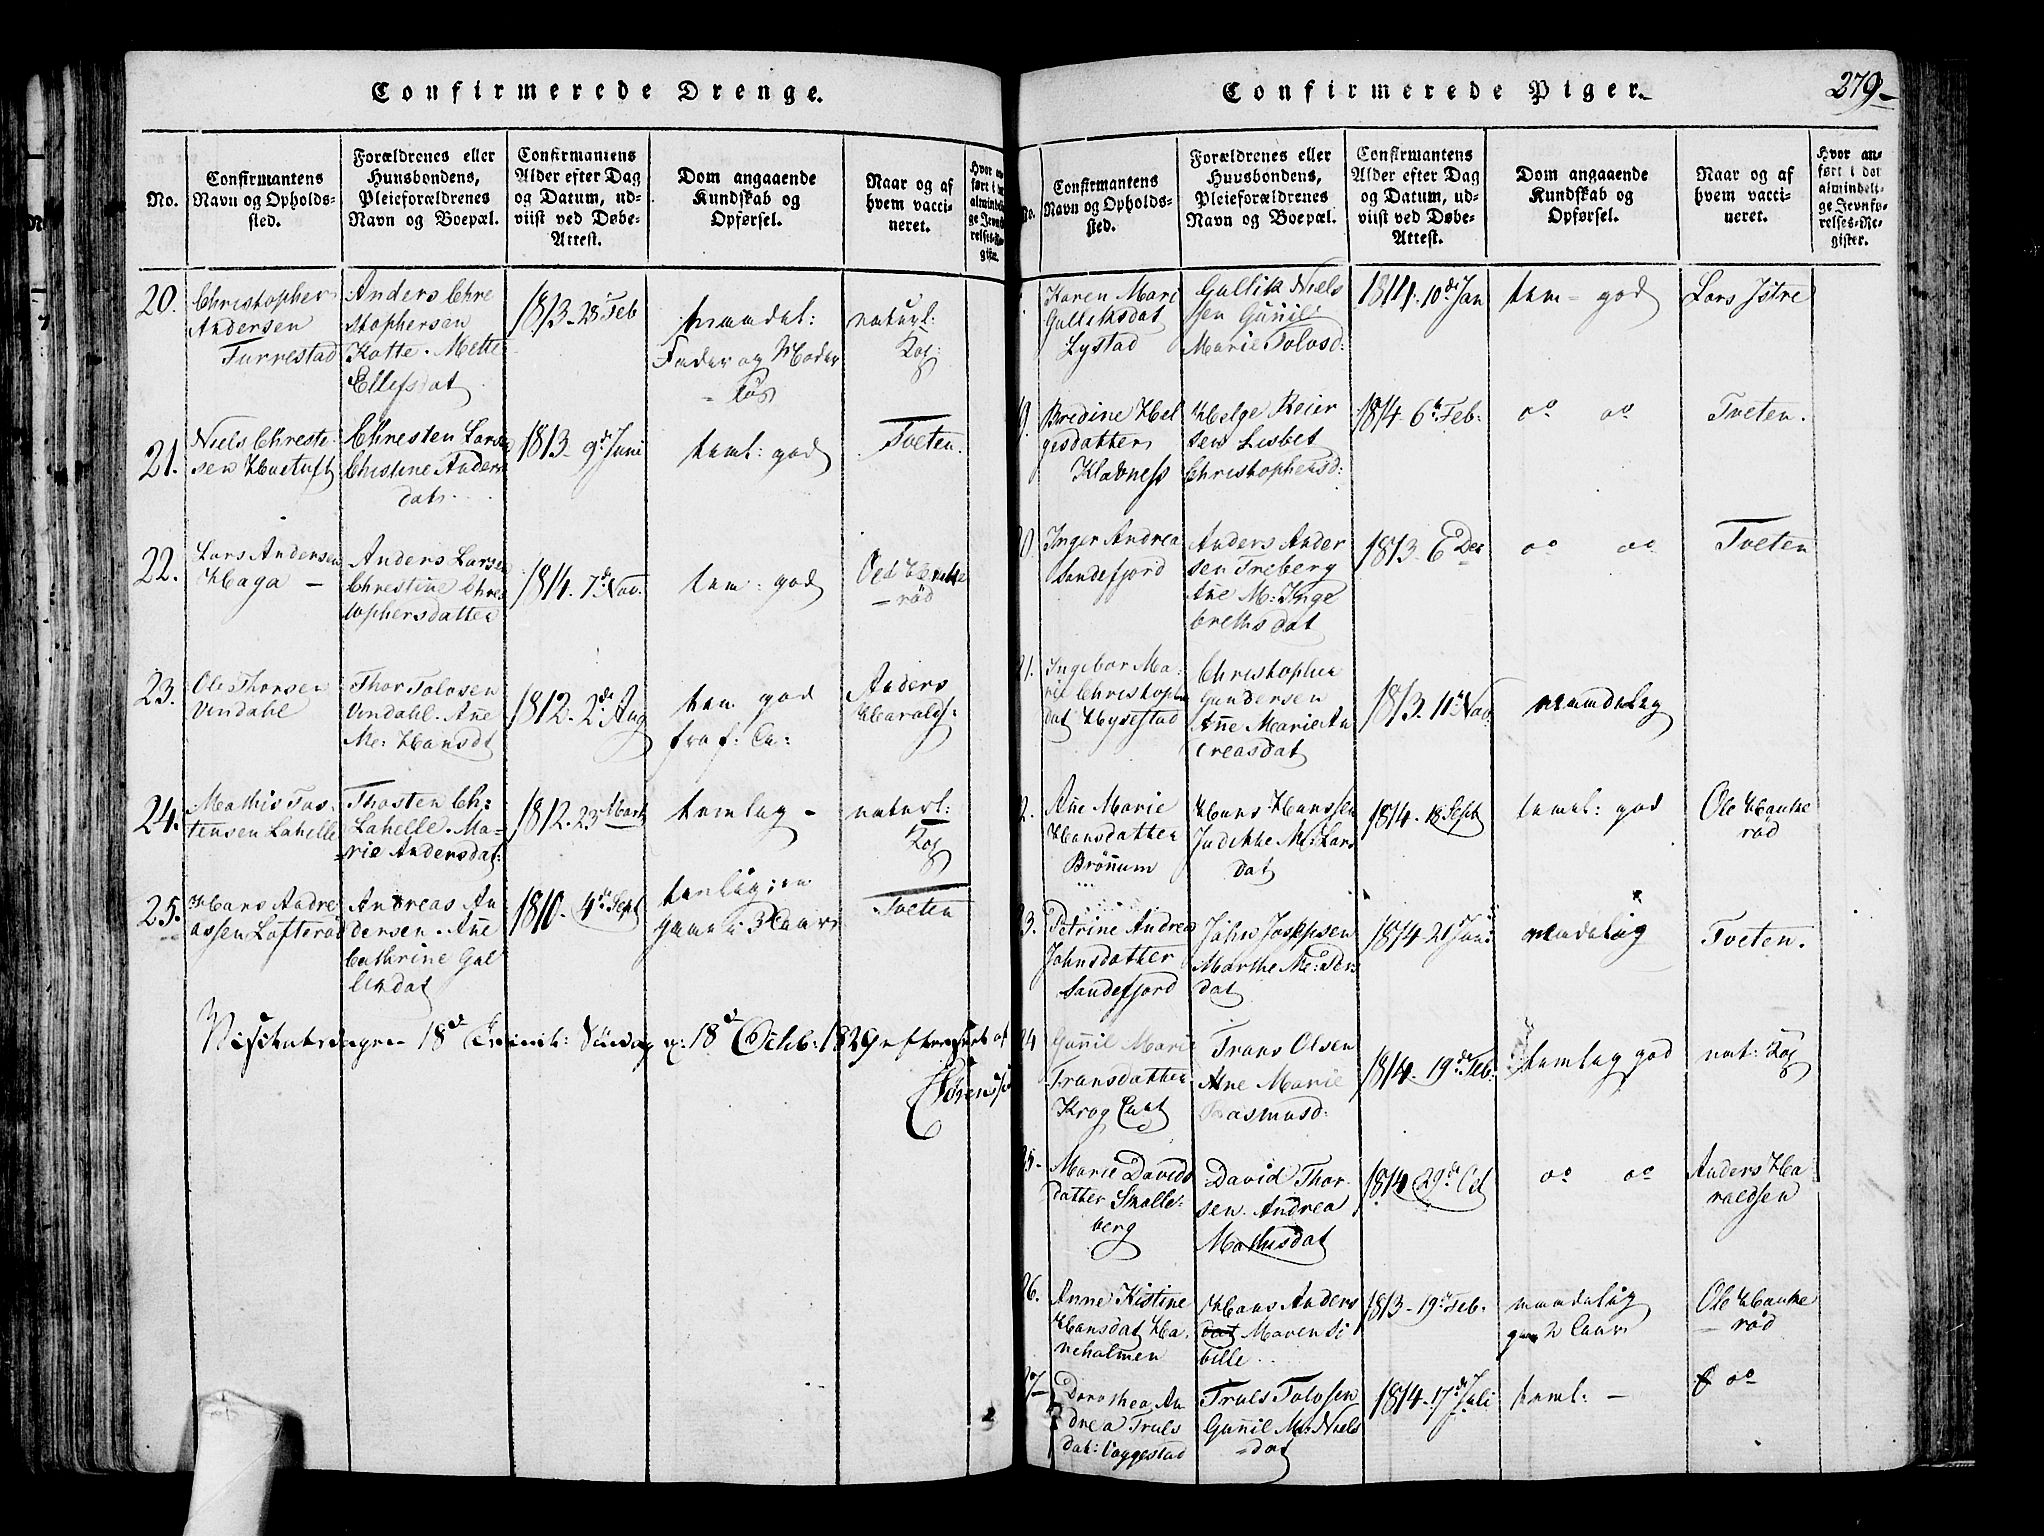 Confirmerede Drenge.
No.
Confirmantens
Navn og Opholds-
sted.
Forældrenes eller
Huusbondens,
Pleieforældrenes
Navn og Boepæl.
Confirmantens
Alder efter Dag
og Datum, ud-
viist ved Døbe-
Attest.
Dom angaaende
Kundskab og
Opførsel.
Naar og af
hvem vacci-
neret.
20.
Christopher
Andersen
Furrestad
Anders Chre
stophersen
Kotte. Mette
Ellefsdat
1813. 28 Feb
maadel:
Fader og Moder
løs
naturl:
Kop
21.
Niels Christe-
sen Haetuft
Chresten Lars
Christine Anders
dat.
1813. 9de Juni
teml: god
Tveten.
22.
Lars Andersen
Haga –
Anders Larsen
Chrestine Chris
tophersdatter
1814. 7de Nov.
tem: god
Ole Hanke
– rød
23.
Ole Thorsen
Vindahl
Thor Tolosen
Vindahl. Añe
Me: Hansdt
1812. 2de Aug
tem god
Anders
Haralds:
24.
Mathis Tos-
tensen Lahelle
Thosten Ch:
Lahelle. Ma-
rie Andersdat:
1812. 23 Marts
temlag –
naturl:
Kop
25.
Hans Andre
assen Lofterød
Andreas An
dersen. Añe
Cathrine Gul
liksdat
1810. 4de Sept
temlig:
gaael: 3 Aar
Tveten
18de Søndag 18de Octb: 1829
Confirmerede Piger.
279–
No.
Confirmantens
Navn og Opholds-
sted.
Forældrenes eller
Huusbondens,
Pleieforældrenes
Navn og Boepæl.
Confirmantens
Alder efter Dag
og Datum, ud-
viist ved Døbe-
Attest.
Dom angaaende
Kundskab og
Opførsel.
Naar og af
hvem vacci-
neret.
Hvor an-
ført i det
almindeli-
ge Jevnfø-
relses-Re-
gister.
Karen Mari
Gulliksdat
Lystad
Gullik Niels
sen Guñil
Marie Tolosd:
1814. 10de Jan
tem – god
Lars Istre
9.
Bredine Hel
gesdatter
Klavness
Helge Reier
sen Lisbet
Christophersd:
1814 6te Feb.
do do
Tveten.
0.
Inger Andrea
Sandefjord
Anders Ander
sen Treberg
Añe M: Inge
brethsdat
1813. 6 Des
do do
Tveten
1.
Ingebor Ma-
rie Christoph
dat Hystad
Christopher
Gundersen
Añe Marie An
dreasdat
1813. 11te Nov.
maadelag
2.
Añe Marie
Hansdatter
Brøñum
Hans Hanssen
Judikke M: Lars
dat
1814. 18 Sept
temel: god
Ole Hanke
rød
3.
Petrine Andrea
Johnsdatter
Sandefjord
John Josepsen
Marthe Me: Per
dat
1814 21de Juni
maadelig
Tveten.
24
Guñil Marie
Fransdatter
Krog
Frans Olsen
Añe Marie
Rasmusd:
1814. 19de Feb.
temlag god
nat: Kop
25.
Marie Davids
datter Skolle-
berg
David Thor
sen. Andrea
Mathisdat
1814 29de Oct
do do
Anders Ha-
raldsen
26.
Anne Kistine
Hansdat Ha-
neholmen
Hans Anders
dat Maren Si
bille
1813. 19de Feb.
maadelig
2
Ole Hanke
– rød
27
Dorothea An
drea Truls
dat: Voggestad
Truls Tolosen
Guñil M: Niels
– dat
1814. 17de Juli
teml: –
do